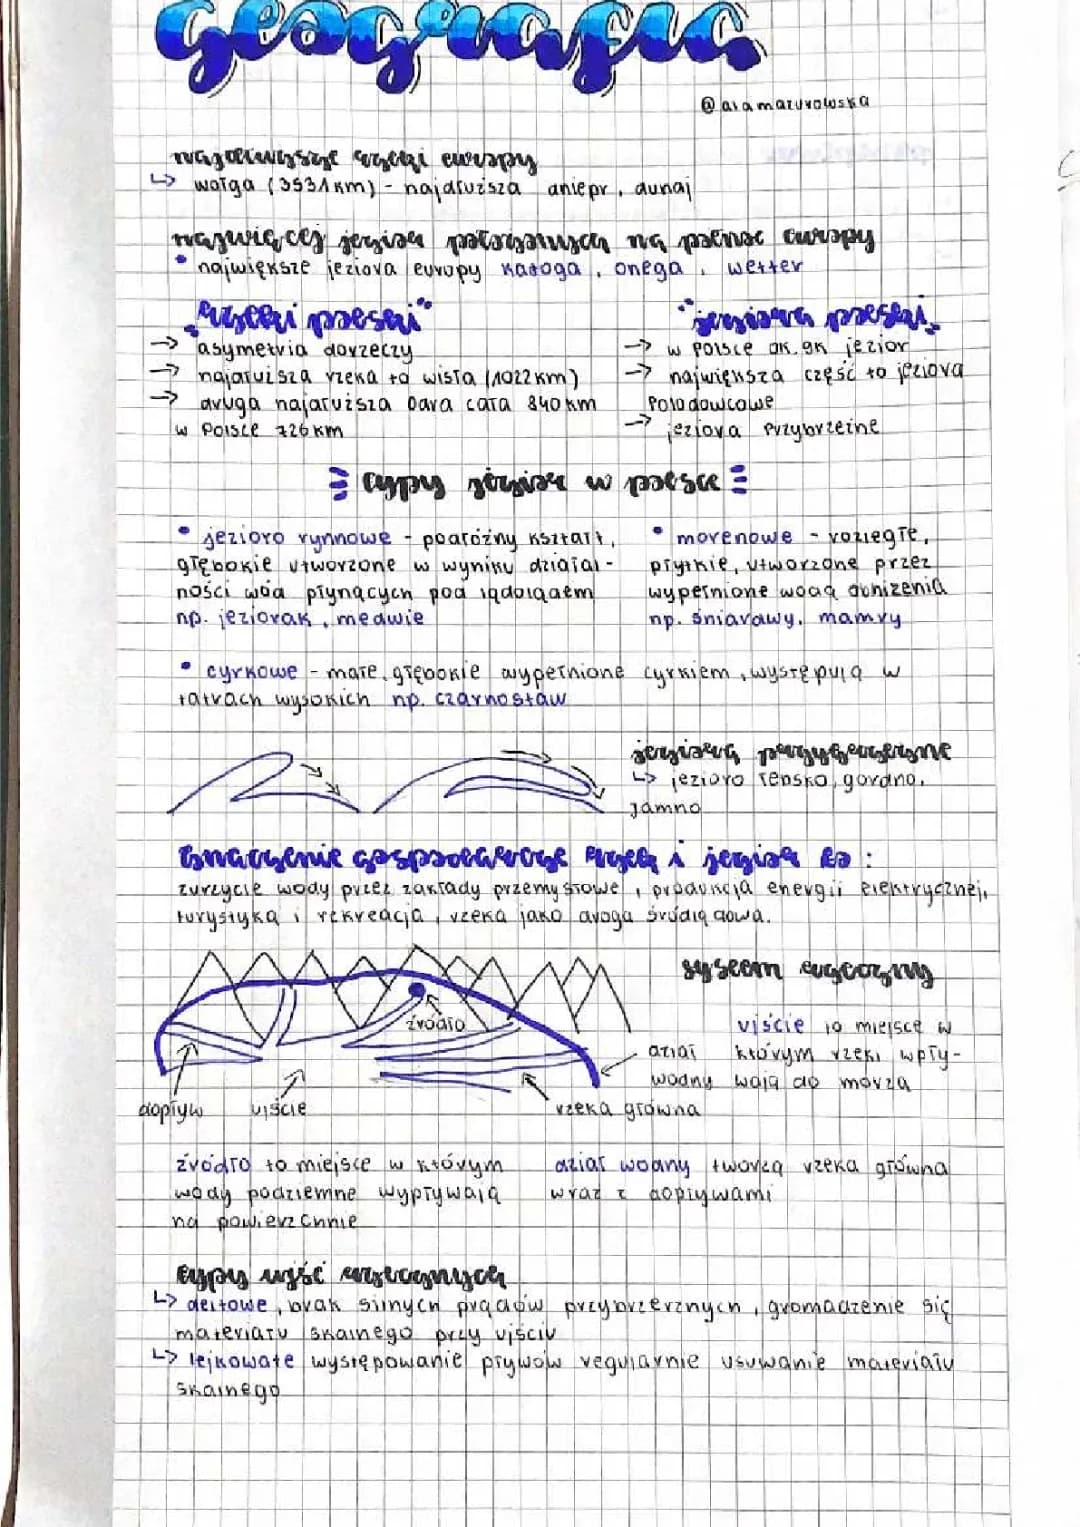 geografia
@ alamazurowska
najdłuższe rzeki europy
↳ wołga (3531km) - najdłuższa dniepr, dunaj
najwięcej jezior położonych na północ europy
• największe jeziora europy ładoga, onega, wetter
"rzeki polski"
→ asymetria dorzeczy
→ najdłuższa rzeka to wisła (1022km)
→ druga najdłuższa odra cała 840km
w Polsce 726km
"jeziora polski"
→ w polsce ok. 9k jezior
→ największa część to jeziora
Polodowcowe
→ jeziora Przybrzeżne
typy jezior w polsce
• jezioro rynnowe - podłóżny kształt,
głębokie utworzone w wyniku działal-
ności wód płynących pod lądolądem
np. jeziorak, medwie
• morenowe - rozległe,
płytkie, utworzone przez
wypełnione wodą obniżenia
np. śniardwy, mamry
• cyrkowe - małe, głębokie wypełnione cyrkiem, występują w
tatrach wysokich np. czarnostaw
jeziora przybrzeżne
↳ jezioro łebsko, gardno,
Jamno
znaczenie gospodarcze rzek i jezior to :
zużycie wody przez zakłady przemysłowe, produkcja energii elektrycznej,
turystyka i rekreacja, rzeka jako droga śródlądowa.
system rzeczny
źródło
ujście to miejsce w
którym rzeki wpły-
wają do morza
dział
wodny
dopływ
ujście
rzeka główna
źródło to miejsce w którym
wody podziemne wypływają
na powierzchnie
dział wodny tworzą rzeka główna
wraz z dopływami
typy ujść rzecznych
↳ deltowe, brak silnych prądów przybrzerznych, gromadzenie się
materiału skalnego przy ujściu
↳ lejkowate występowanie pływów regularnie usuwanie materiału
skalnego